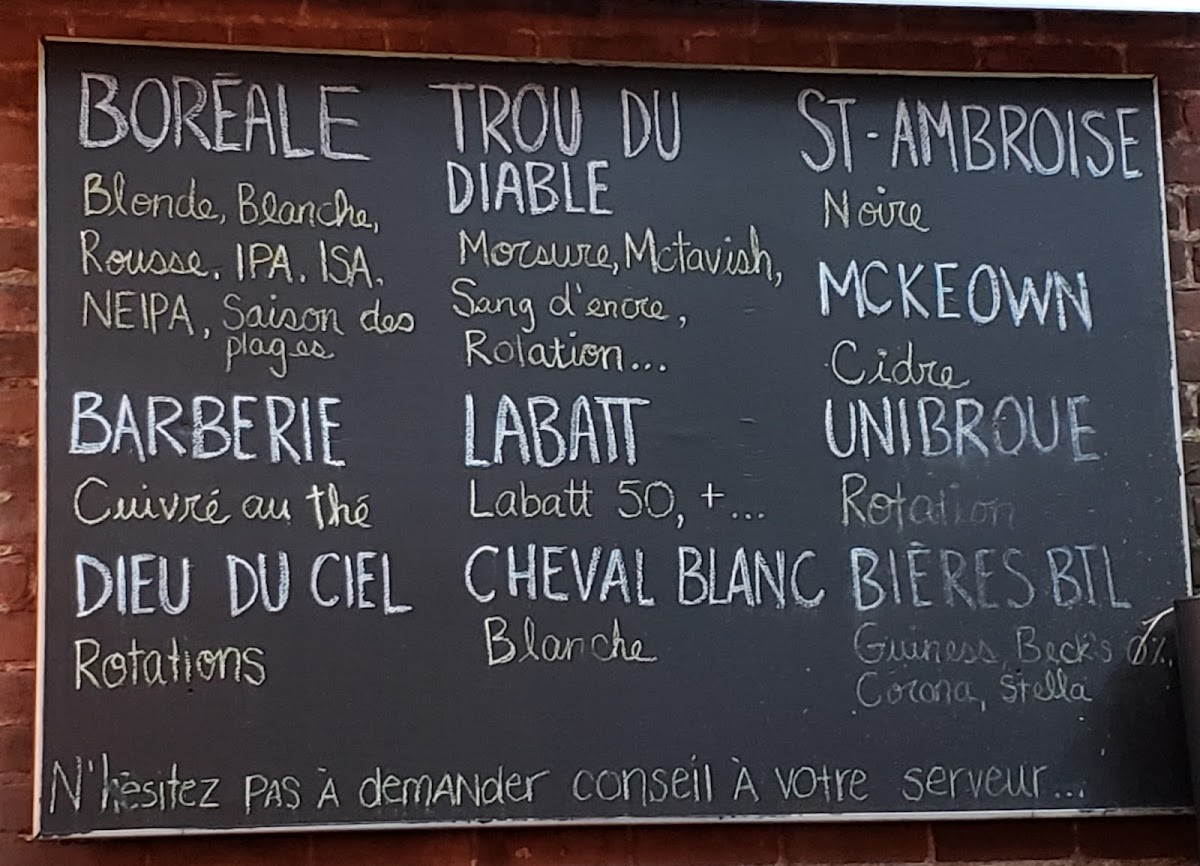 BORÉALE
Blonde, Blanche,
Rousse, IPA, ISA,
NEIPA, Saison des
plages
BARBERIE
Cuivré au thé
DIEU DU CIEL
Rotations
TROU DU
DIABLE
Morsure, Mctavish,
Sang d'encre,
Rotation...
LABATT
Labatt 50, +...
CHEVAL BLANC
Blanche
ST-AMBROISE
Noire
MCKEOWN
Cidre
UNIBROUE
Rotation
BIÈRES BTL
Guiness, Beck's 0%,
Corona, Stella
N'hésitez PAS À demANder conseil À votre serveur...